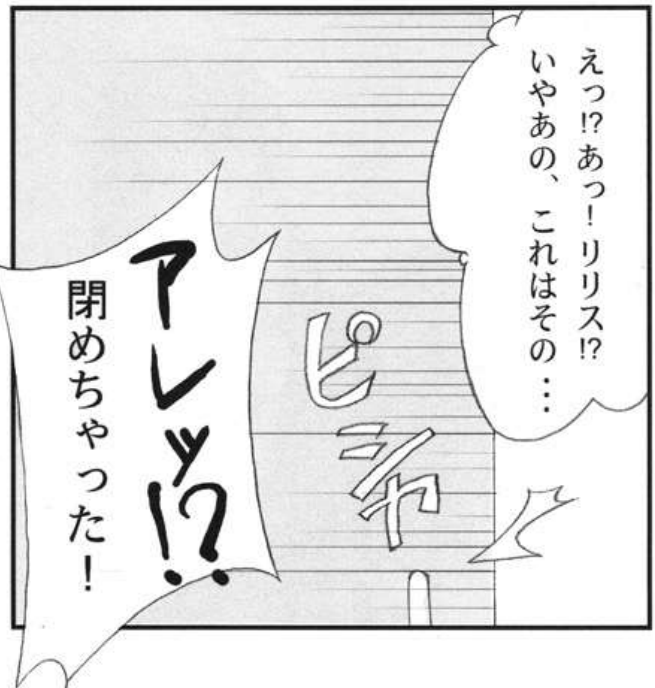 えっ!?あっ！リリス!?
いやあの、これはその・・・
ピシャ
アレッ!?
閉めちゃった！